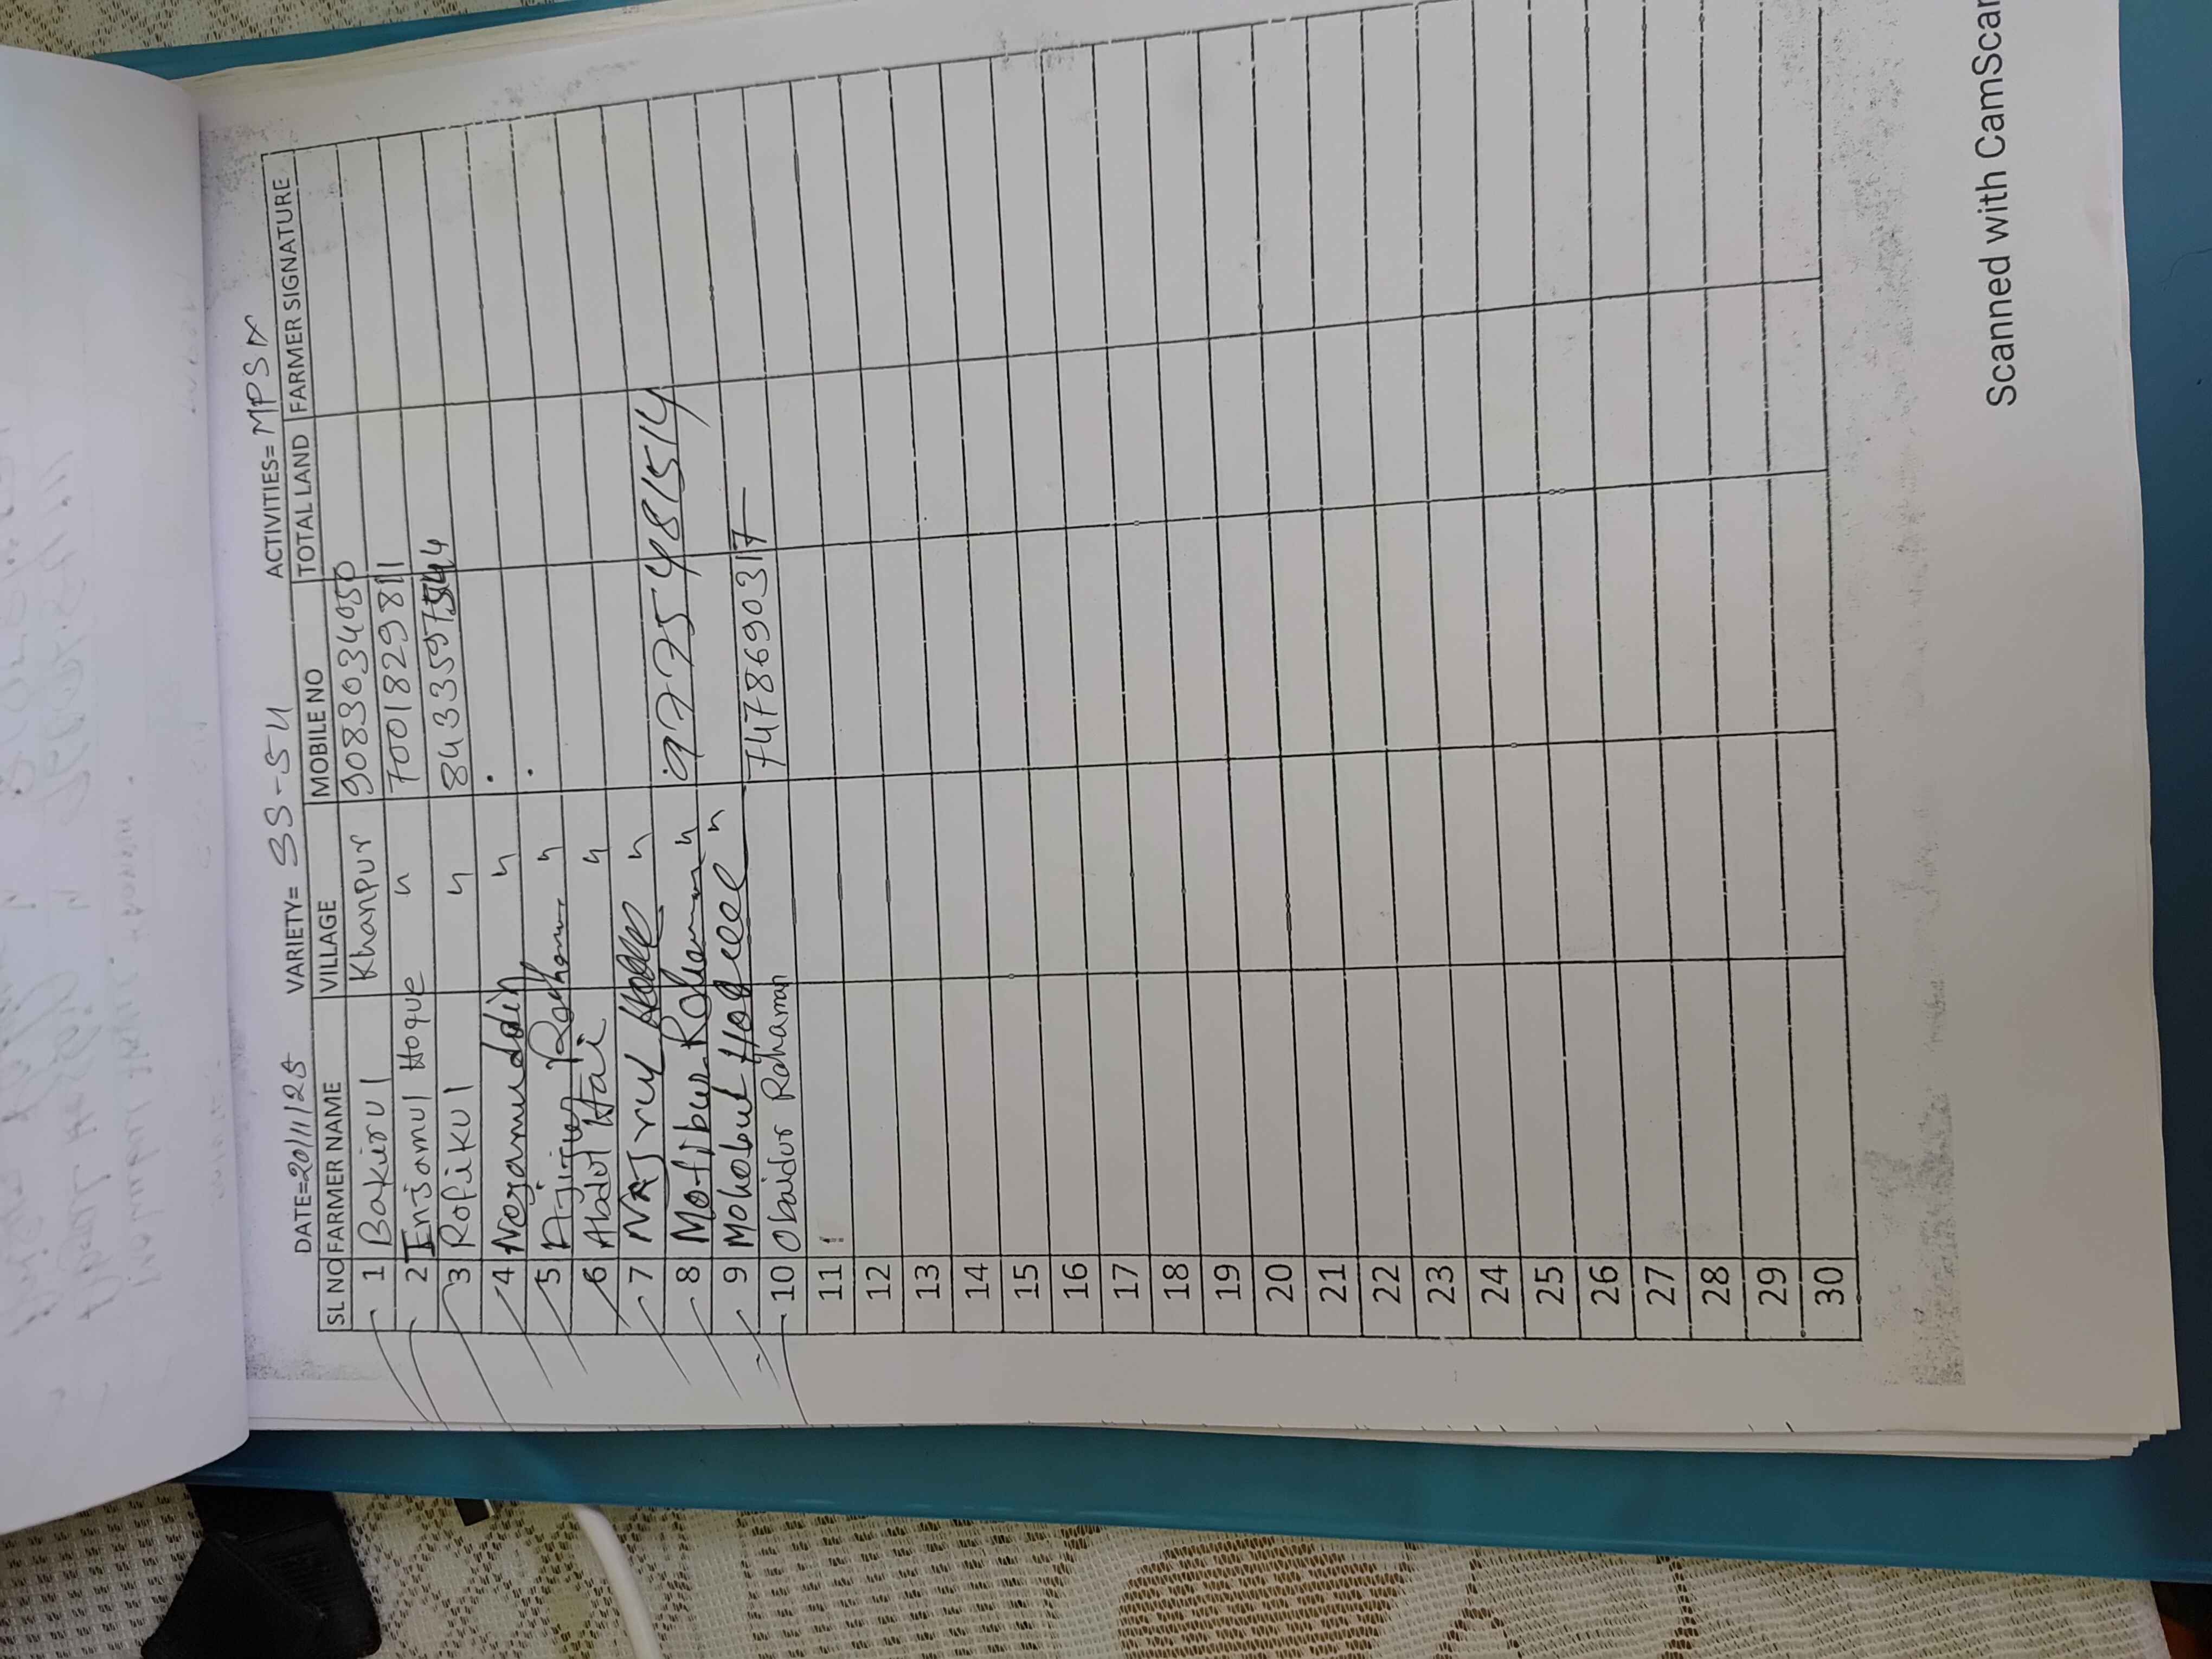 DATE=20/11/25 VARIETY= SS-54 ACTIVITIES= MPSA
SL NO FARMER NAME VILLAGE MOBILE NO TOTAL LAND FARMER SIGNATURE
1 Bakirul Khanpur 9083034050
2 Enjamul Hoque " 7001829811
3 Rofikul " 8433597544
4 Nojamuddin " .
5 Ajijur Rodhomun " .
6 Abdul Hai "
7 Najrul "
8 Mofibur Roheman " 9775481514
9 Mohobul "
10 Obaidur Rahaman 7478690317
11
12
13
14
15
16
17
18
19
20
21
22
23
24
25
26
27
28
29
30
Scanned with CamScan